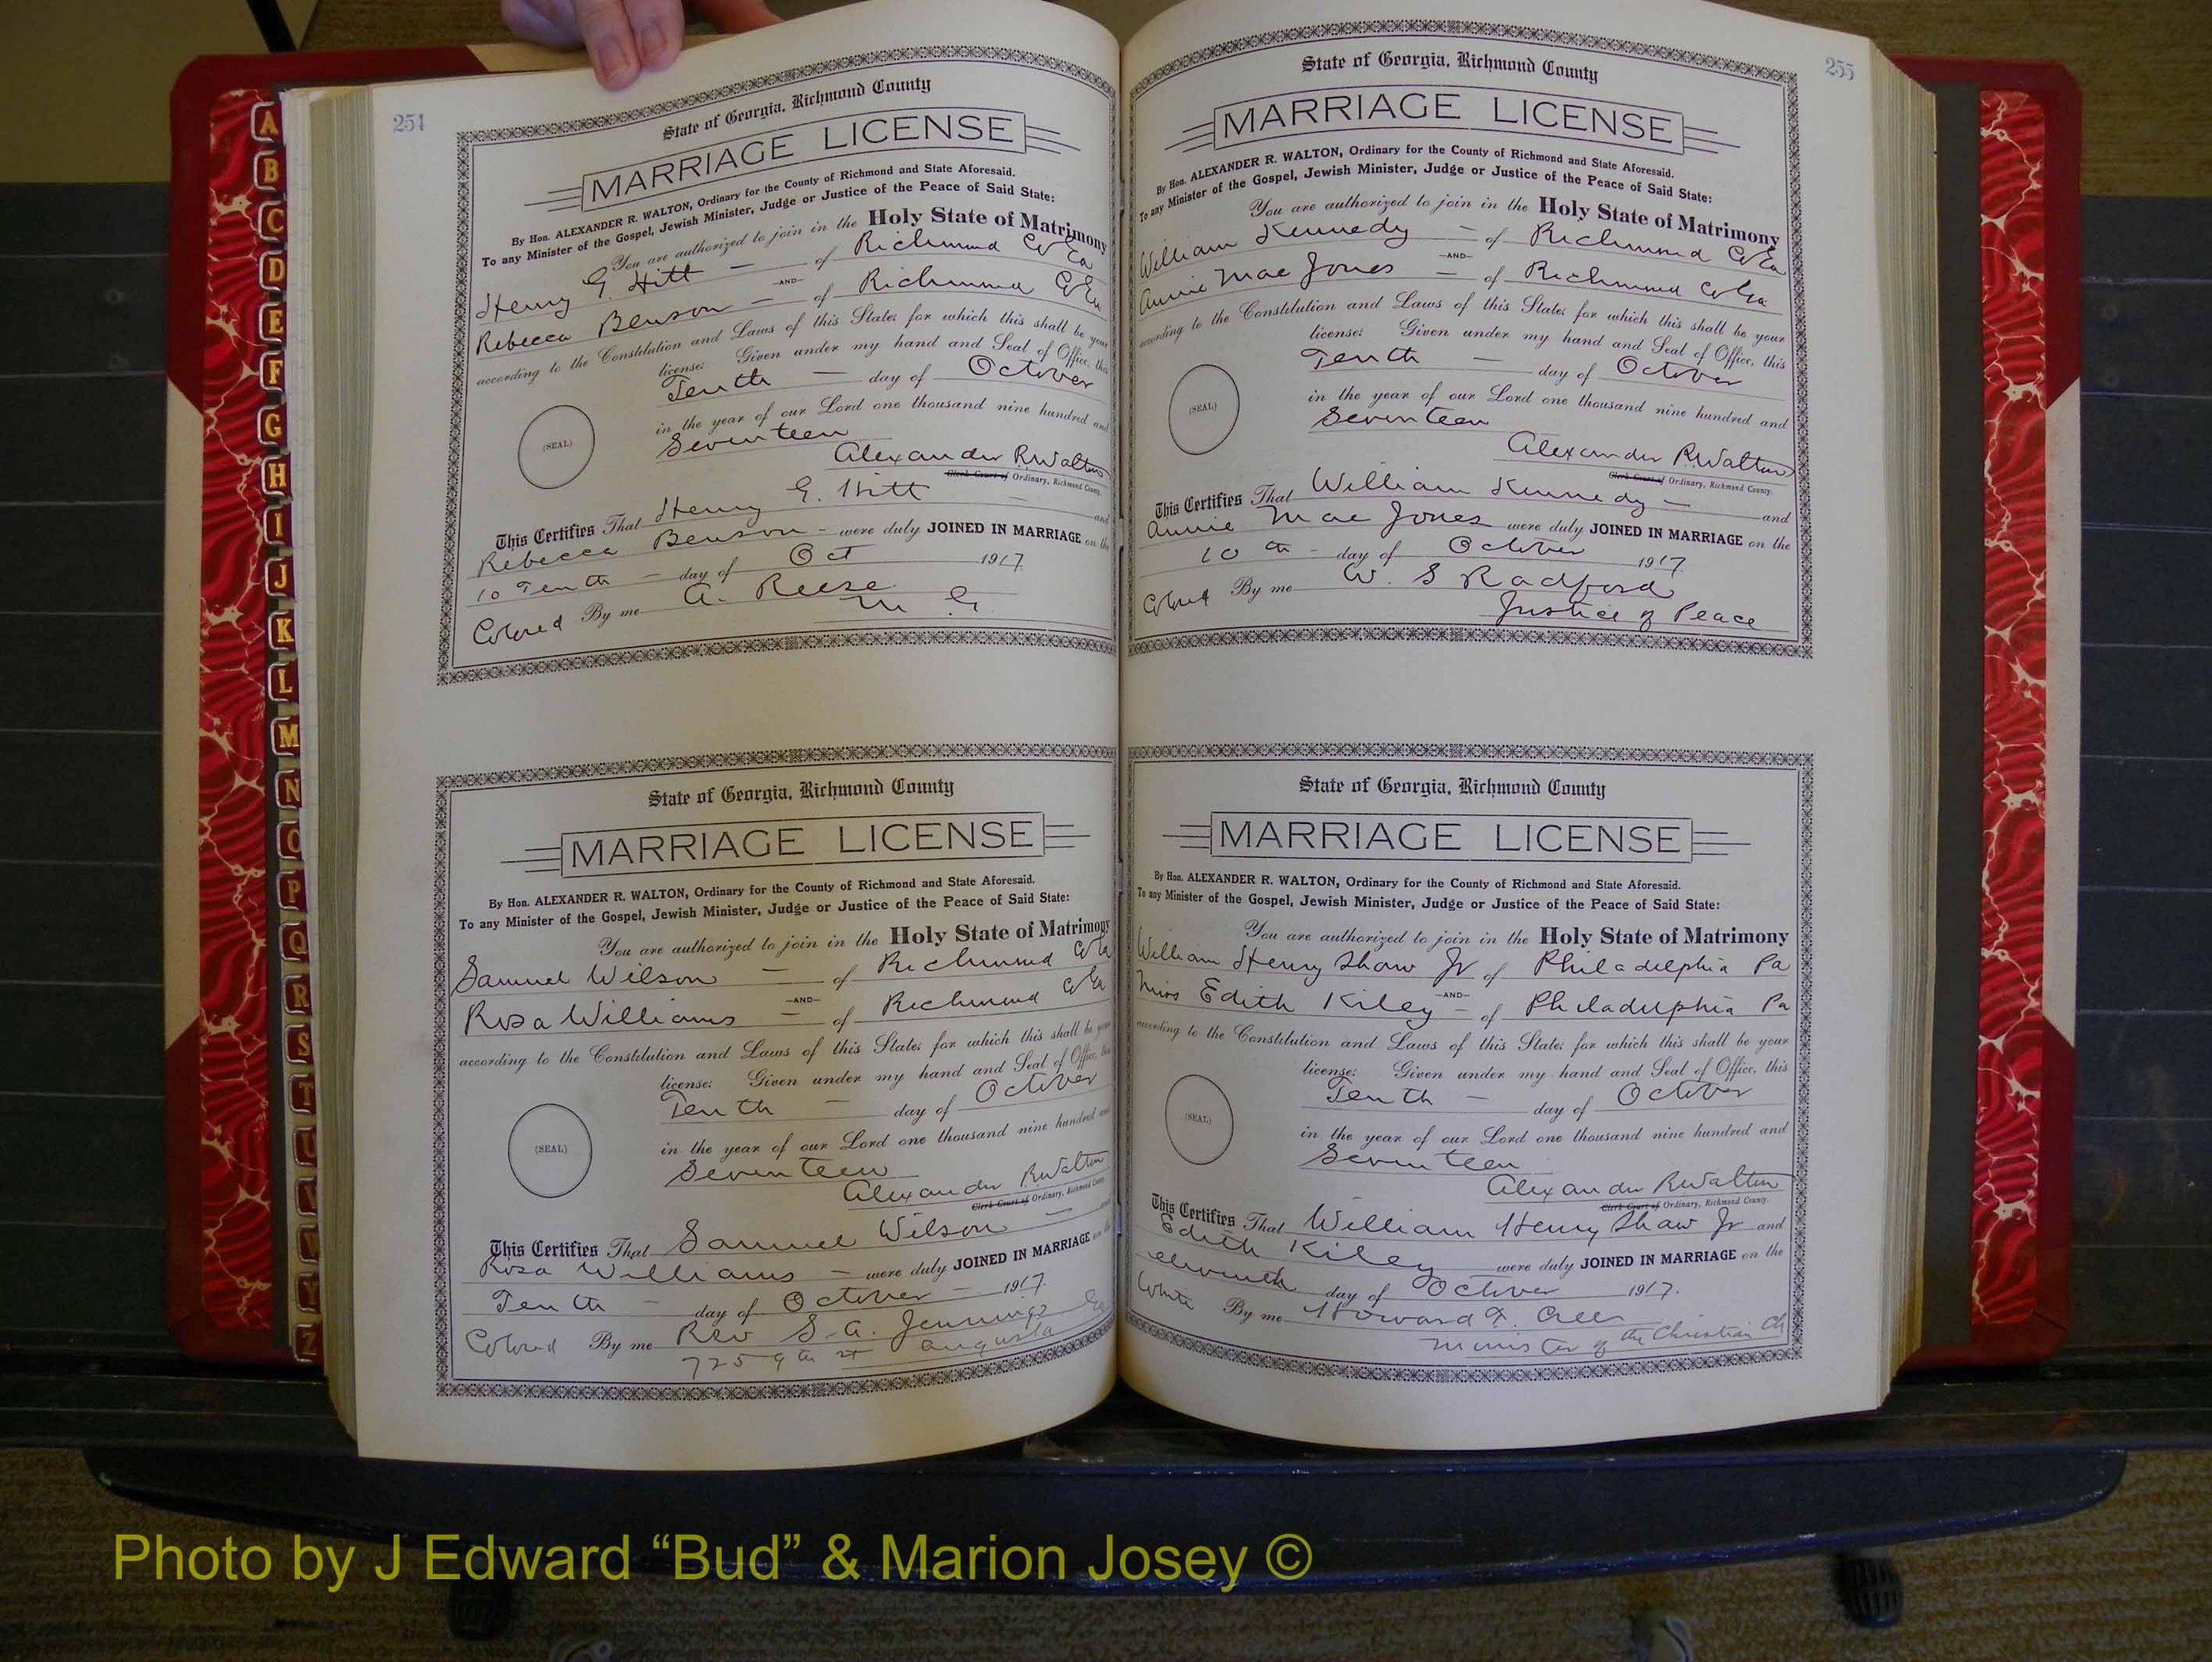 254
State of Georgia, Richmond County
MARRIAGE LICENSE
By Hon. ALEXANDER R. WALTON, Ordinary for the County of Richmond and State Aforesaid.
To any Minister of the Gospel, Jewish Minister, Judge or Justice of the Peace of Said State:
You are authorized to join in the Holy State of Matrimony
Henry G. Hitt — of Richmond Co Ga
-AND-
Rebecca Benson — of Richmond Co Ga
according to the Constitution and Laws of this State; for which this shall be your
license: Given under my hand and Seal of Office, this
Tenth — day of October
in the year of our Lord one thousand nine hundred and
Seventeen
(SEAL)
Alexander R Walton
Clerk Court of Ordinary, Richmond County.
This Certifies That Henry G. Hitt — and
Rebecca Benson — were duly JOINED IN MARRIAGE on the
10 Tenth — day of Oct 1917
Colored By me A. Reese
M G.
State of Georgia, Richmond County
MARRIAGE LICENSE
By Hon. ALEXANDER R. WALTON, Ordinary for the County of Richmond and State Aforesaid.
To any Minister of the Gospel, Jewish Minister, Judge or Justice of the Peace of Said State:
You are authorized to join in the Holy State of Matrimony
Samuel Wilson — of Richmond Co Ga
-AND-
Rosa Williams — of Richmond Co Ga
according to the Constitution and Laws of this State; for which this shall be your
license: Given under my hand and Seal of Office, this
Tenth — day of October
in the year of our Lord one thousand nine hundred and
Seventeen
(SEAL)
Alexander R Walton
Clerk Court of Ordinary, Richmond County.
This Certifies That Samuel Wilson — and
Rosa Williams — were duly JOINED IN MARRIAGE on the
Tenth — day of October — 1917.
Colored By me Rev S. A. Jennings
725 9th st Augusta Ga
255
State of Georgia, Richmond County
MARRIAGE LICENSE
By Hon. ALEXANDER R. WALTON, Ordinary for the County of Richmond and State Aforesaid.
To any Minister of the Gospel, Jewish Minister, Judge or Justice of the Peace of Said State:
You are authorized to join in the Holy State of Matrimony
William Kennedy — of Richmond Co Ga
-AND-
Annie Mae Jones — of Richmond Co Ga
according to the Constitution and Laws of this State; for which this shall be your
license: Given under my hand and Seal of Office, this
Tenth — day of October
in the year of our Lord one thousand nine hundred and
Seventeen
(SEAL)
Alexander R. Walton
Clerk Court of Ordinary, Richmond County.
This Certifies That William Kennedy — and
Annie Mae Jones were duly JOINED IN MARRIAGE on the
10 th - day of October 1917.
Colored By me W. S Radford
Justice of Peace
State of Georgia, Richmond County
MARRIAGE LICENSE
By Hon. ALEXANDER R. WALTON, Ordinary for the County of Richmond and State Aforesaid.
To any Minister of the Gospel, Jewish Minister, Judge or Justice of the Peace of Said State:
You are authorized to join in the Holy State of Matrimony
William Henry Shaw Jr of Philadelphia Pa
-AND-
Miss Edith Kiley — of Philadelphia Pa
according to the Constitution and Laws of this State; for which this shall be your
license: Given under my hand and Seal of Office, this
Tenth — day of October
in the year of our Lord one thousand nine hundred and
Seventeen
(SEAL)
Alexander R Walton
Clerk Court of Ordinary, Richmond County.
This Certifies That William Henry Shaw Jr and
Edith Kiley were duly JOINED IN MARRIAGE on the
eleventh day of October 1917.
White By me Howard T. Cree
Minister of the Christian Ch
A
B
C
D
E
F
G
H
I
J
K
L
M
N
O
P
Q
R
S
T
U
V
W
Y
Z
Photo by J Edward “Bud” & Marion Josey ©